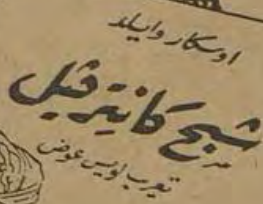 اوسكار وايلد
شبح كانترڤيل
تعريب لويس عوض